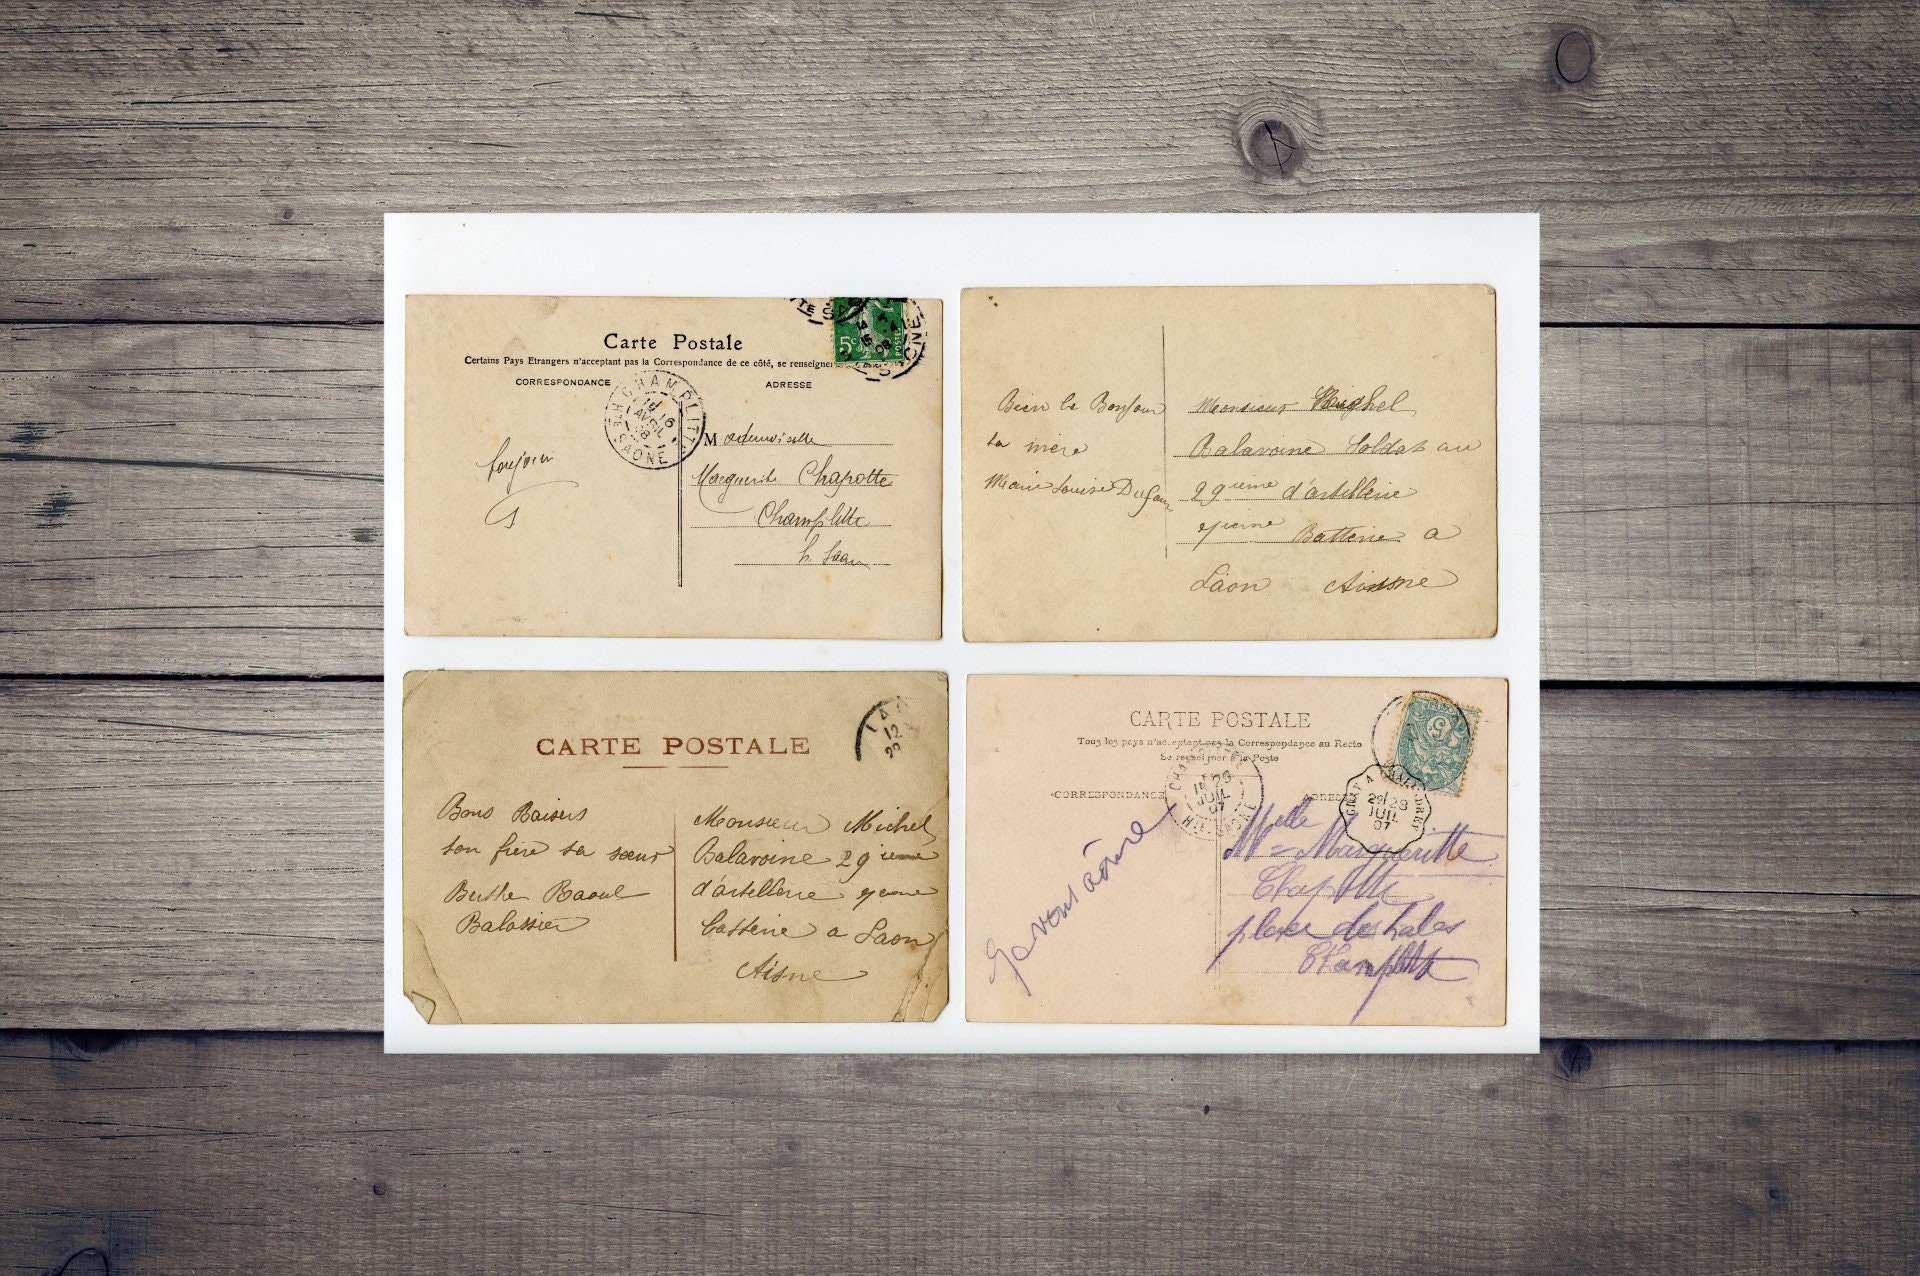 Carte Postale
Certains Pays Etrangers n'acceptent pas la Correspondance de ce côté, se renseigner
CORRESPONDANCE
ADRESSE
5c
POSTES
CHAMPLITTE
19 16
AVRIL
08
Hte SAONE
M ademoiselle
Marguerite Chapotte
Champlitte
h. Saone
Bien le Bonjour
ta mère
Marie Louise Dufour
Monsieur
Balavoine Soldat au
29 ieme d'artillerie
Batterie a
Laon Aisne
CARTE POSTALE
12
Bons Baisers
ton frère ta sœur
Berthe Raoul
Monsieur Michel
Balavoine 29 ieme
d'artillerie
batterie a Laon
Aisne
CARTE POSTALE
Tous les pays n'acceptent pas la Correspondance au Recto
Se renseigner à la Poste
CORRESPONDANCE
ADRESSE
5
19 26
JUIL
07
Hte SAONE
GRAY A CHALINDREY
28
JUIL
07
Melle Margueritte
Chapotte
place des hales
Champlitte